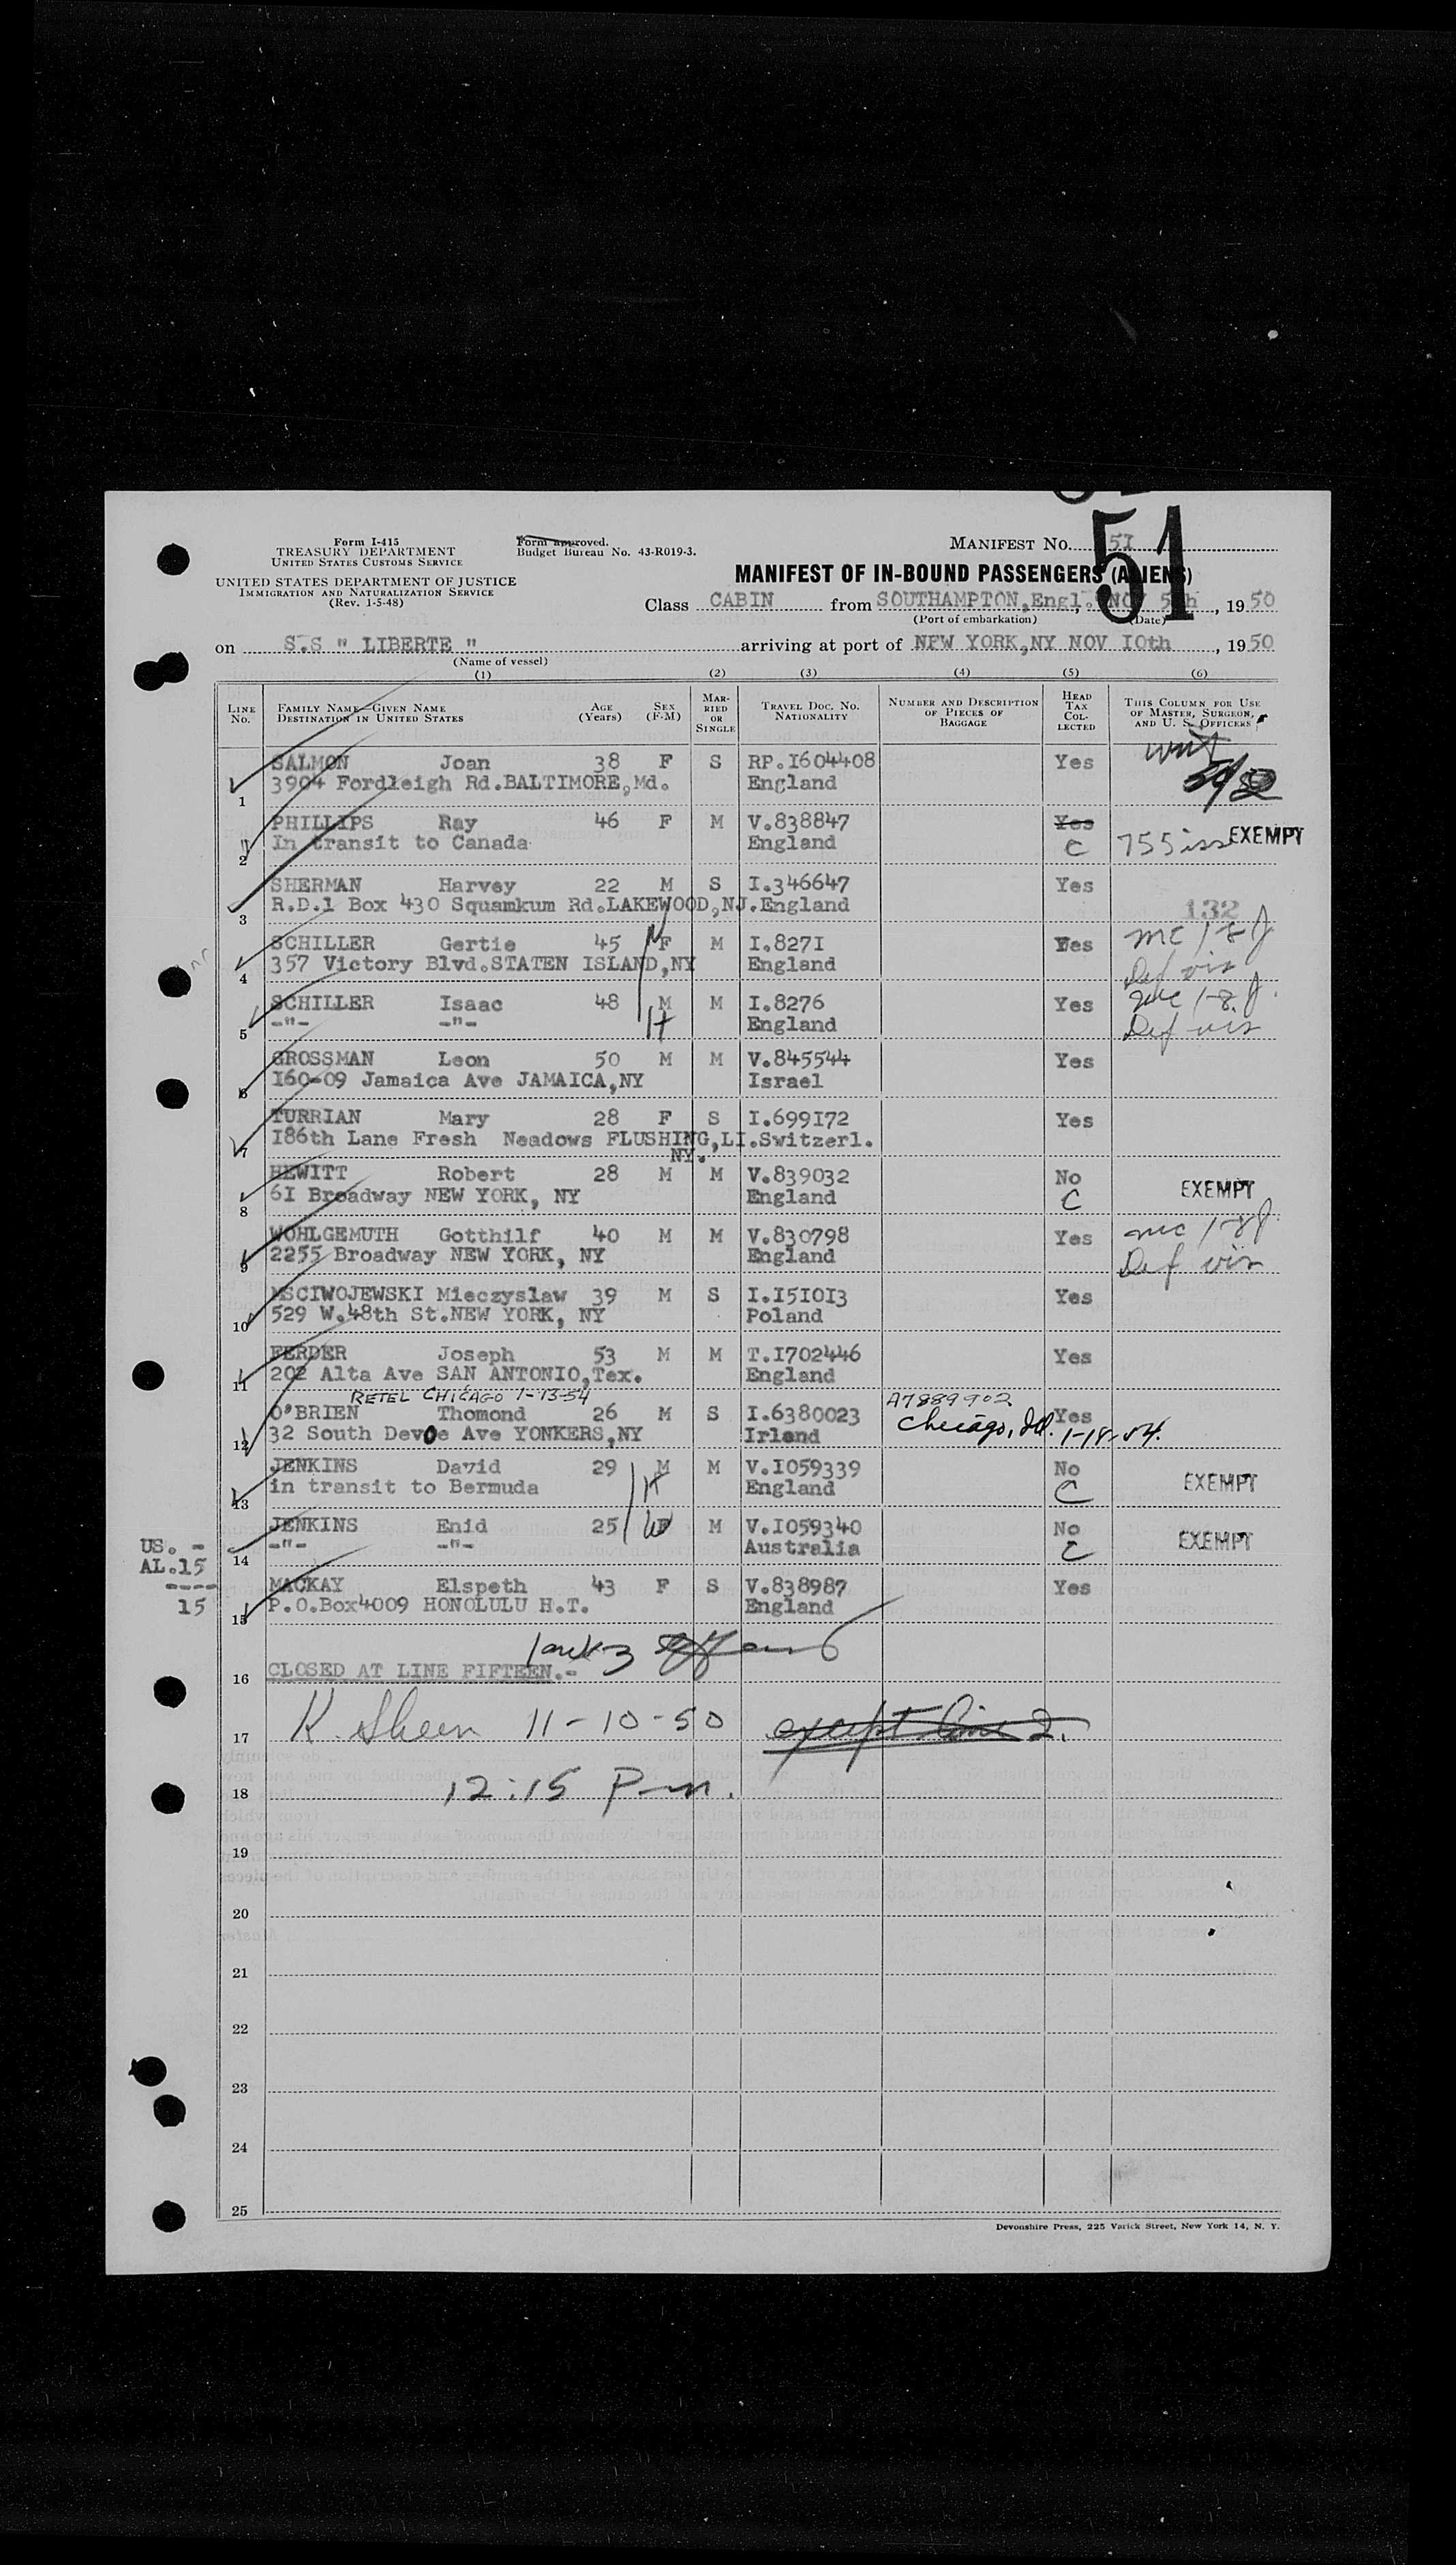 51
Form I-415
TREASURY DEPARTMENT
UNITED STATES CUSTOMS SERVICE
UNITED STATES DEPARTMENT OF JUSTICE
IMMIGRATION AND NATURALIZATION SERVICE
(Rev. 1-5-48)
Form approved.
Budget Bureau No. 43-R019-3.
MANIFEST NO. 5I
MANIFEST OF IN-BOUND PASSENGERS (ALIENS)
Class CABIN from SOUTHAMPTON,Engl., NOV 5th, 1950
(Port of embarkation) (Date)
on S.S " LIBERTE " arriving at port of NEW YORK,NY NOV IOth, 1950
(Name of vessel)
(1) (2) (3) (4) (5) (6)
LINE No. FAMILY NAME—GIVEN NAME DESTINATION IN UNITED STATES AGE (Years) SEX (F-M) MARRIED OR SINGLE TRAVEL DOC. NO. NATIONALITY NUMBER AND DESCRIPTION OF PIECES OF BAGGAGE HEAD TAX COLLECTED THIS COLUMN FOR USE OF MASTER, SURGEON, AND U. S. OFFICERS
SALMON Joan 38 F S RP.I604408 Yes
1 3904 Fordleigh Rd.BALTIMORE,Md. England
PHILLIPS Ray 46 F M V.838847 Yes
2 In transit to Canada England C 755 iss EXEMPT
SHERMAN Harvey 22 M S I.346647 Yes
3 R.D.1 Box 430 Squamkum Rd.LAKEWOOD,NJ.England 132
SCHILLER Gertie 45 F M I.827I Yes mc 1-8 J
4 357 Victory Blvd.STATEN ISLAND,NY England Def vis
SCHILLER Isaac 48 M M I.8276 Yes mc 1-8 J.
5 -"- -"- H England Def vis
GROSSMAN Leon 50 M M V.845544 Yes
6 I60-09 Jamaica Ave JAMAICA,NY Israel
TURRIAN Mary 28 F S I.699I72 Yes
7 I86th Lane Fresh Neadows FLUSHING,LI.Switzerl.
NY.
HEWITT Robert 28 M M V.839032 No
8 6I Broadway NEW YORK, NY England C EXEMPT
WOHLGEMUTH Gotthilf 40 M M V.830798 Yes mc 1-8 J.
9 2255 Broadway NEW YORK, NY England Def vis
MSCIWOJEWSKI Mieczyslaw 39 M S I.I5IOI3 Yes
10 529 W.48th St.NEW YORK, NY Poland
FERDER Joseph 53 M M T.I702446 Yes
11 202 Alta Ave SAN ANTONIO,Tex. England
RETEL CHICAGO 1-13-54 A7889902
O'BRIEN Thomond 26 M S I.6380023 Chicago, Ill. Yes
12 32 South Devoe Ave YONKERS,NY Irland 1-18-54.
JENKINS David 29 M M V.I059339 No
13 in transit to Bermuda H England C EXEMPT
JENKINS Enid 25 W F M V.I059340 No
14 -"- -"- Australia C EXEMPT
US. -
AL.15
----
15
MACKAY Elspeth 43 F S V.838987 Yes
15 P.O.Box4009 HONOLULU H.T. England
16 CLOSED AT LINE FIFTEEN.-
17 K. Sheen 11-10-50 except line 2.
18 12:15 Pm.
19
20
21
22
23
24
25
Devonshire Press, 225 Varick Street, New York 14, N. Y.